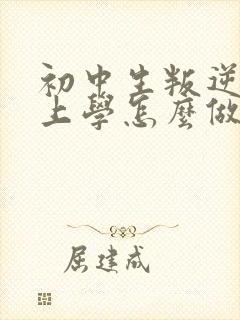 初中生叛逆
上學怎麼做
屈建成